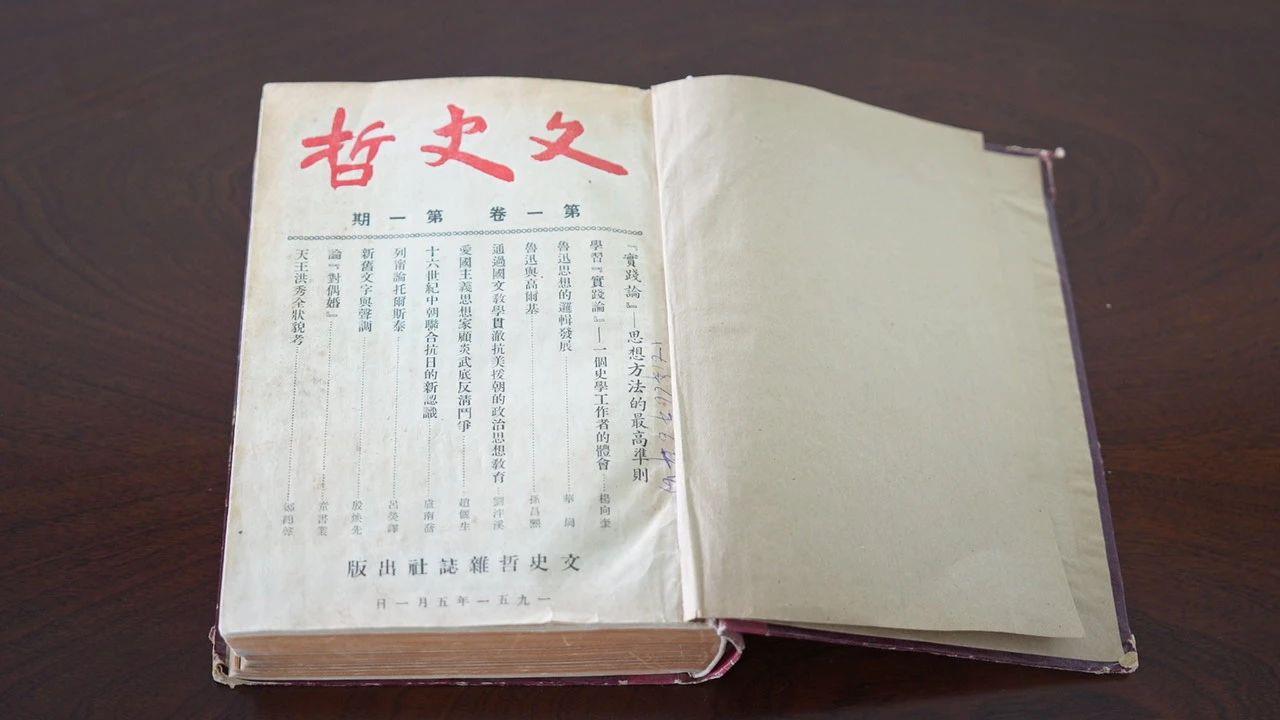 文史哲
第一卷 第一期
『實踐論』—思想方法的最高準則
學習『實踐論』——一個史學工作者的體會……楊向奎
魯迅思想的邏輯發展……華崗
魯迅與高爾基……孫昌熙
通過國文教學貫澈抗美援朝的政治思想教育……劉泮溪
愛國主義思想家顧炎武底反清鬥爭……趙儷生
十六世紀中朝聯合抗日的新認識……盧南喬
列甯論托爾斯泰……呂熒譯
新舊文字與聲調……殷煥先
論『對偶婚』……童書業
天王洪秀全狀貌考……鄭鶴聲
文史哲雜誌社出版
一九五一年五月一日